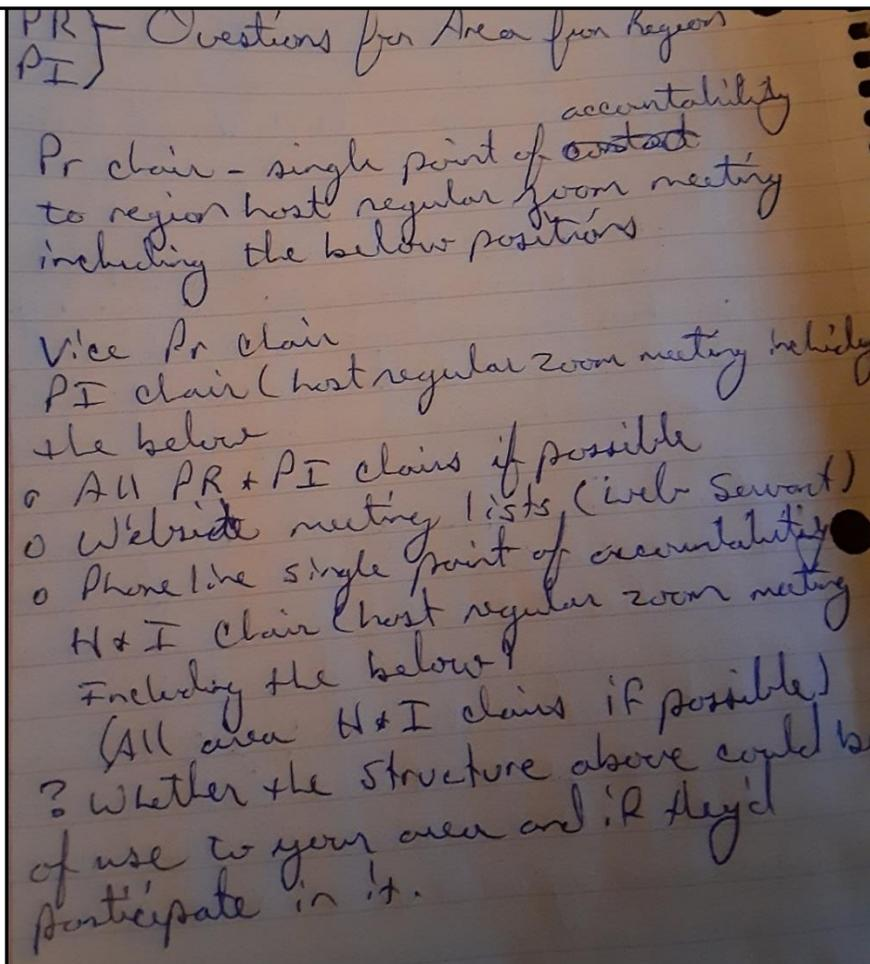 PR } - Questions for Area from Region
PI }
accountability
Pr chair - single point of contact
to region host regular zoom meeting
including the below positions
Vice Pr chair
PI chair (host regular zoom meeting includig
the below
o All PR + PI chairs if possible
o Website meeting lists, (web Servant)
o Phone line single point of accountability
H & I Chair (host regular zoom meeting
Including the below?
(All area H & I chairs if possible)
? Whether the structure above could be
of use to your area and if they'd
participate in it.